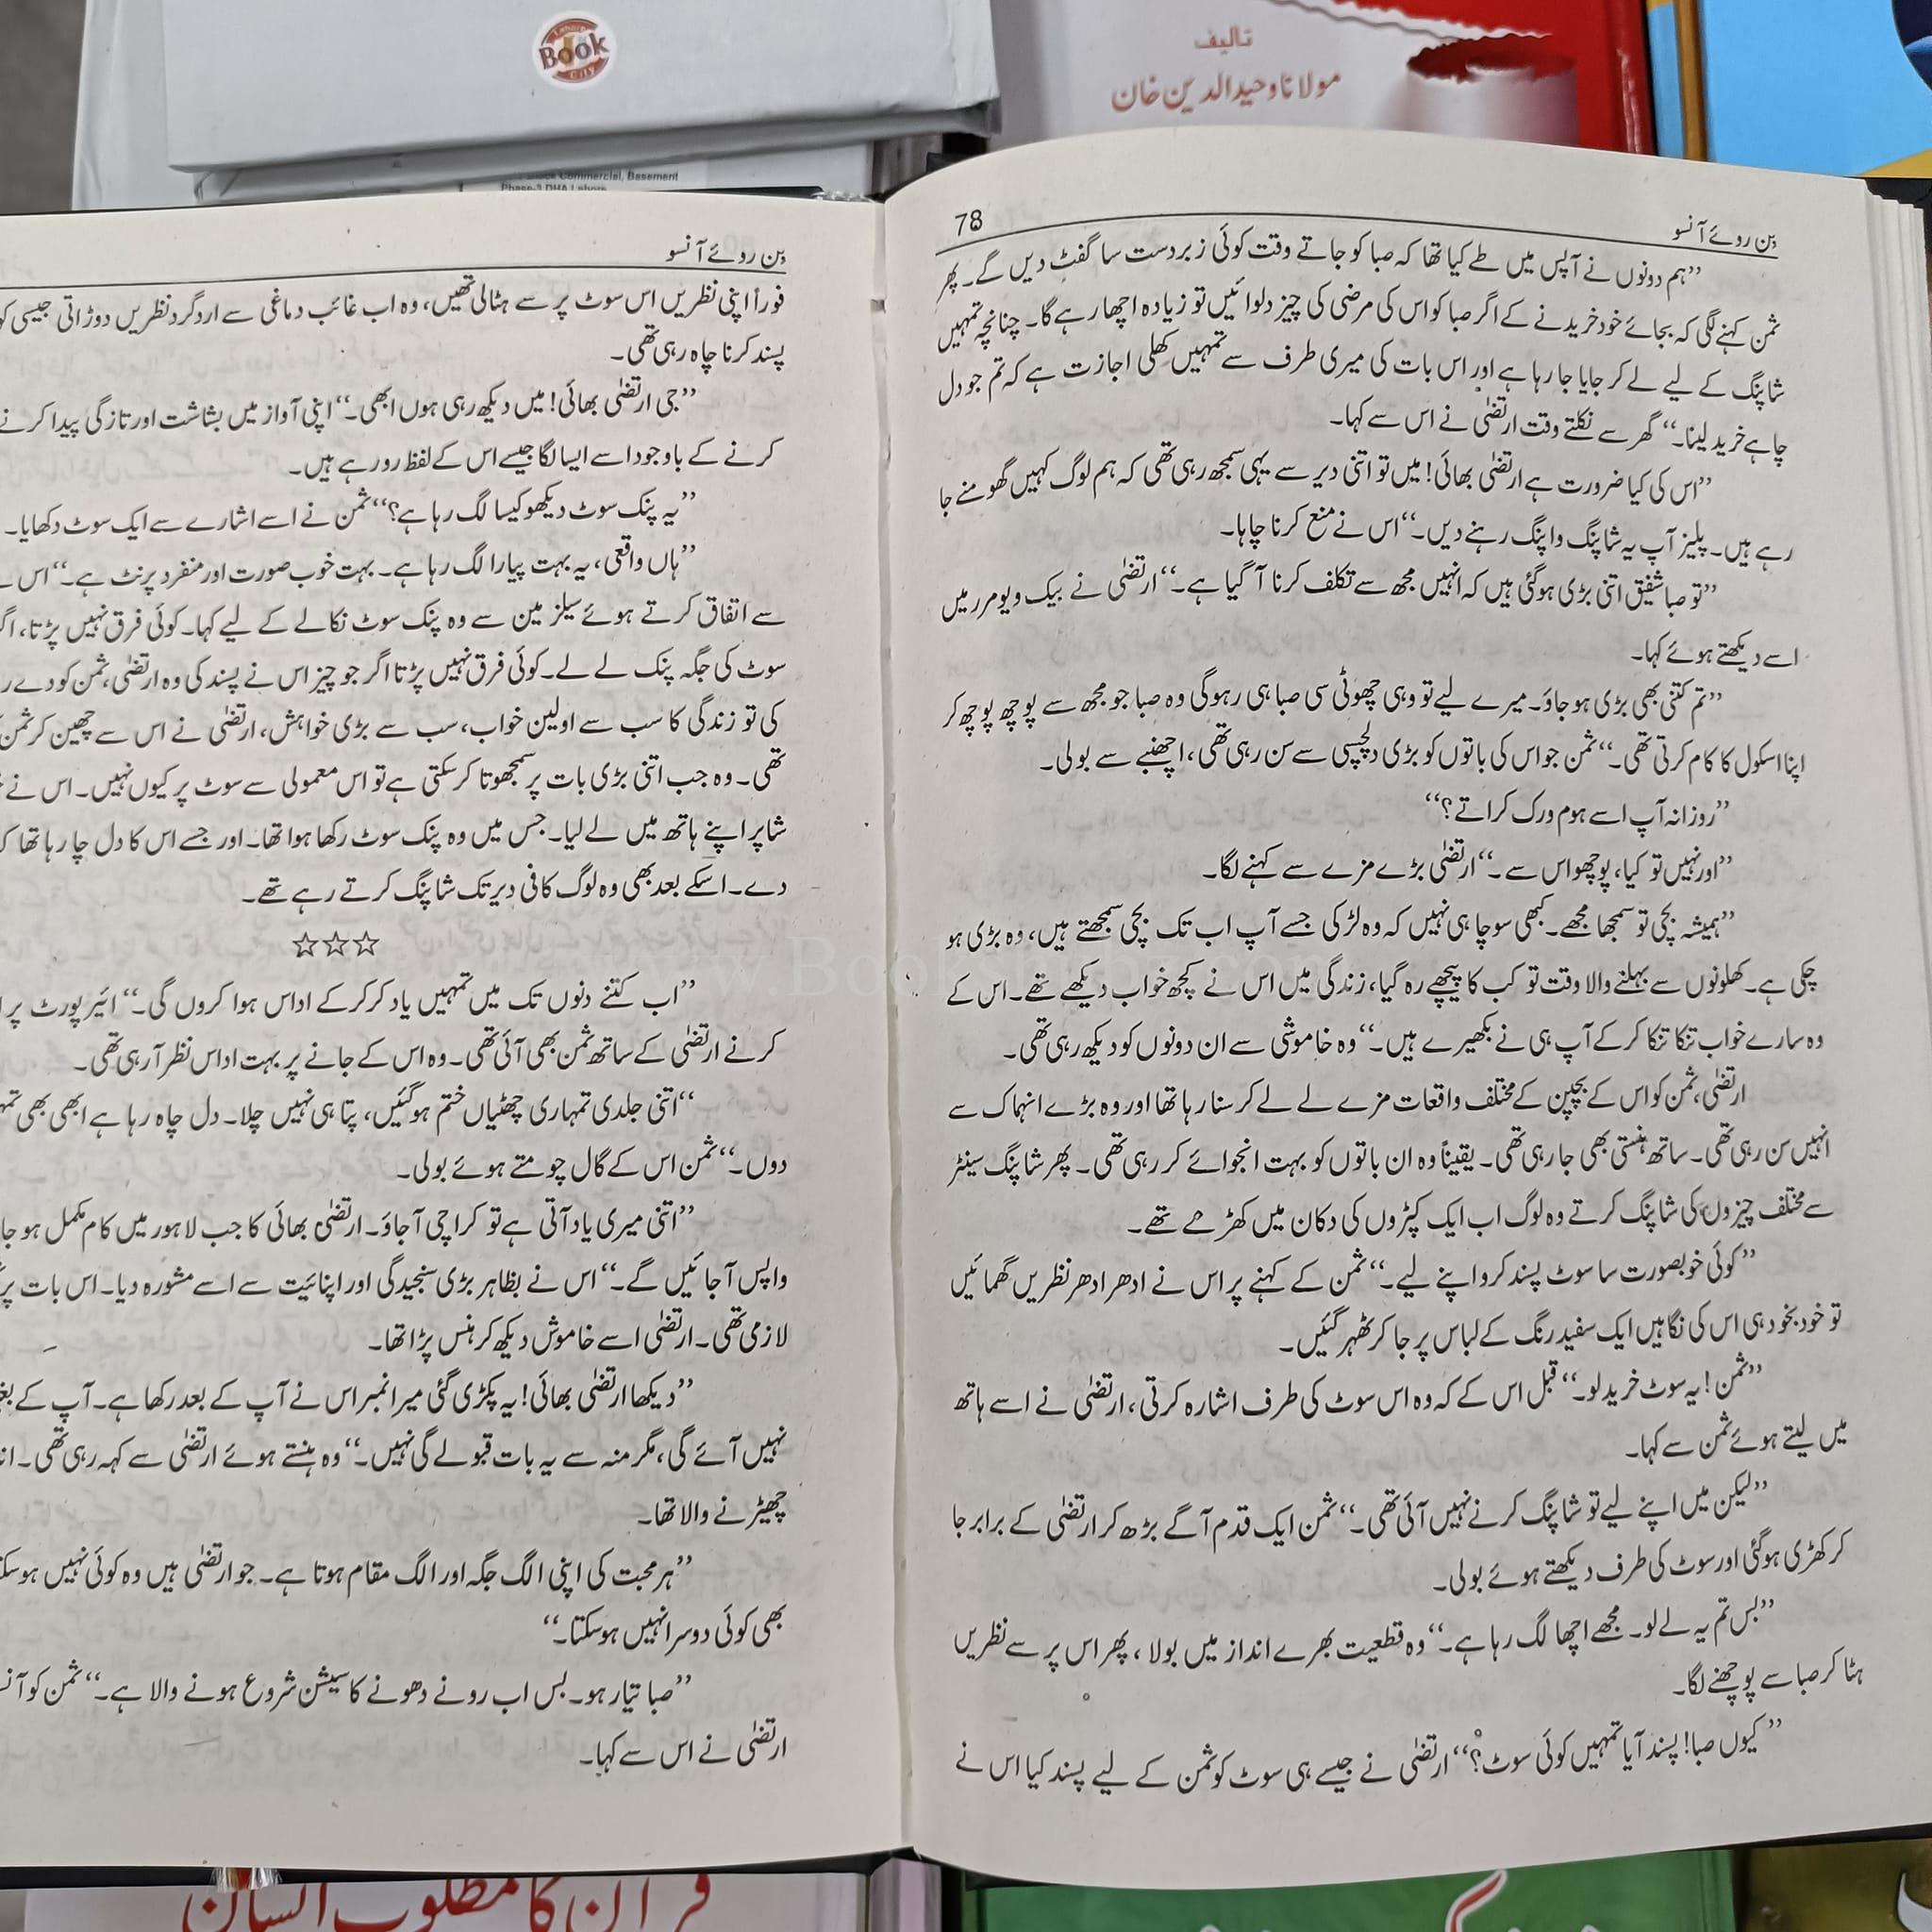 Book
CITY
تالیف
مولانا وحیدالدین خان
Commercial, Basement
Phase-3 DHA Lahore
78
بن روئے آنسو
”ہم دونوں نے آپس میں طے کیا تھا کہ صبا کو جاتے وقت کوئی زبردست سا گفٹ دیں گے۔ پھر
ثمن کہنے لگی کہ بجائے خود خریدنے کے اگر صبا کو اس کی مرضی کی چیز دلوائیں تو زیادہ اچھا رہے گا۔ چنانچہ تمہیں
شاپنگ کے لیے لے کر جایا جا رہا ہے اور اس بات کی میری طرف سے تمہیں کھلی اجازت ہے کہ تم جو دل
چاہے خرید لینا۔“ گھر سے نکلتے وقت ارتضٰی نے اس سے کہا۔
”اس کی کیا ضرورت ہے ارتضٰی بھائی! میں تو اتنی دیر سے یہی سمجھ رہی تھی کہ ہم لوگ کہیں گھومنے جا
رہے ہیں۔ پلیز آپ یہ شاپنگ واپنگ رہنے دیں۔“ اس نے منع کرنا چاہا۔
”تو صبا شفیق اتنی بڑی ہو گئی ہیں کہ انہیں مجھ سے تکلف کرنا آ گیا ہے۔“ ارتضٰی نے بیک ویو مرر میں
اسے دیکھتے ہوئے کہا۔
”تم کتنی بھی بڑی ہو جاؤ۔ میرے لیے تو وہی چھوٹی سی صبا ہی رہو گی وہ صبا جو مجھ سے پوچھ پوچھ کر
اپنا اسکول کا کام کرتی تھی۔“ ثمن جو اس کی باتوں کو بڑی دلچسپی سے سن رہی تھی، اچنبھے سے بولی۔
”روزانہ آپ اسے ہوم ورک کراتے؟“
”اور نہیں تو کیا، پوچھو اس سے۔“ ارتضٰی بڑے مزے سے کہنے لگا۔
”ہمیشہ بچی تو سمجھا مجھے۔ کبھی سوچا ہی نہیں کہ وہ لڑکی جسے آپ اب تک بچی سمجھتے ہیں، وہ بڑی ہو
چکی ہے۔ کھلونوں سے بہلنے والا وقت تو کب کا پیچھے رہ گیا، زندگی میں اس نے کچھ خواب دیکھے تھے۔ اس کے
وہ سارے خواب تنکا تنکا کر کے آپ ہی نے بکھیرے ہیں۔“ وہ خاموشی سے ان دونوں کو دیکھ رہی تھی۔
ارتضٰی، ثمن کو اس کے بچپن کے مختلف واقعات مزے لے لے کر سنا رہا تھا اور وہ بڑے انہماک سے
انہیں سن رہی تھی۔ ساتھ ہنستی بھی جا رہی تھی۔ یقیناً وہ ان باتوں کو بہت انجوائے کر رہی تھی۔ پھر شاپنگ سینٹر
سے مختلف چیزوں کی شاپنگ کرتے وہ لوگ اب ایک کپڑوں کی دکان میں کھڑے تھے۔
”کوئی خوبصورت سا سوٹ پسند کرو اپنے لیے۔“ ثمن کے کہنے پر اس نے ادھر ادھر نظریں گھمائیں
تو خود بخود ہی اس کی نگاہیں ایک سفید رنگ کے لباس پر جا کر ٹھہر گئیں۔
”ثمن! یہ سوٹ خرید لو۔“ قبل اس کے کہ وہ اس سوٹ کی طرف اشارہ کرتی، ارتضٰی نے اسے ہاتھ
میں لیتے ہوئے ثمن سے کہا۔
”لیکن میں اپنے لیے تو شاپنگ کرنے نہیں آئی تھی۔“ ثمن ایک قدم آگے بڑھ کر ارتضٰی کے برابر جا
کر کھڑی ہو گئی اور سوٹ کی طرف دیکھتے ہوئے بولی۔
”بس تم یہ لے لو۔ مجھے اچھا لگ رہا ہے۔“ وہ قطعیت بھرے انداز میں بولا، پھر اس پر سے نظریں
ہٹا کر صبا سے پوچھنے لگا۔
”کیوں صبا! پسند آیا تمہیں کوئی سوٹ؟“ ارتضٰی نے جیسے ہی سوٹ کو ثمن کے لیے پسند کیا اس نے
بن روئے آنسو
فوراً اپنی نظریں اس سوٹ پر سے ہٹا لی تھیں، وہ اب غائب دماغی سے ارد گرد نظریں دوڑاتی جیسی
پسند کرنا چاہ رہی تھی۔
”جی ارتضٰی بھائی! میں دیکھ رہی ہوں ابھی۔“ اپنی آواز میں بشاشت اور تازگی پیدا کرنے
کرنے کے باوجود اسے ایسا لگا جیسے اس کے لفظ رو رہے ہیں۔
”یہ پنک سوٹ دیکھو کیسا لگ رہا ہے؟“ ثمن نے اسے اشارے سے ایک سوٹ دکھایا۔
”ہاں واقعی، یہ بہت پیارا لگ رہا ہے۔ بہت خوب صورت اور منفرد پرنٹ ہے۔“ اس
سے اتفاق کرتے ہوئے سیلز مین سے وہ پنک سوٹ نکالے کے لیے کہا۔ کوئی فرق نہیں پڑتا،
سوٹ کی جگہ پنک لے لے۔ کوئی فرق نہیں پڑتا اگر جو چیز اس نے پسند کی وہ ارتضٰی، ثمن کو دے
کی تو زندگی کا سب سے اولین خواب، سب سے بڑی خواہش، ارتضٰی نے اس سے چھین کر ثمن
تھی۔ وہ جب اتنی بڑی بات پر سمجھوتا کر سکتی ہے تو اس معمولی سے سوٹ پر کیوں نہیں۔ اس نے
شاپر اپنے ہاتھ میں لے لیا۔ جس میں وہ پنک سوٹ رکھا ہوا تھا۔ اور جسے اس کا دل چا رہا تھا
دے۔ اسکے بعد بھی وہ لوگ کافی دیر تک شاپنگ کرتے رہے تھے۔
☆☆☆
”اب کتنے دنوں تک میں تمہیں یاد کر کر کے اداس ہوا کروں گی۔“ ائیر پورٹ پر
کرنے ارتضٰی کے ساتھ ثمن بھی آئی تھی۔ وہ اس کے جانے پر بہت اداس نظر آ رہی تھی۔
“اتنی جلدی تمہاری چھٹیاں ختم ہو گئیں، پتا ہی نہیں چلا۔ دل چاہ رہا ہے ابھی بھی
دوں۔“ ثمن اس کے گال چومتے ہوئے بولی۔
”اتنی میری یاد آتی ہے تو کراچی آ جاؤ۔ ارتضٰی بھائی کا جب لاہور میں کام مکمل ہو
واپس آ جائیں گے۔“ اس نے بظاہر بڑی سنجیدگی اور اپنائیت سے اسے مشورہ دیا۔ اس بات پر
لازمی تھی۔ ارتضٰی اسے خاموش دیکھ کر ہنس پڑا تھا۔
”دیکھا ارتضٰی بھائی! یہ پکڑی گئی میرا نمبر اس نے آپ کے بعد رکھا ہے۔ آپ کے
نہیں آئے گی، مگر منہ سے یہ بات قبولے گی نہیں۔“ وہ ہنستے ہوئے ارتضٰی سے کہہ رہی تھی۔
چھیڑنے والا تھا۔
”ہر محبت کی اپنی الگ جگہ اور الگ مقام ہوتا ہے۔ جو ارتضٰی ہیں وہ کوئی نہیں
بھی کوئی دوسرا نہیں ہو سکتا۔“
”صبا تیار ہو۔ بس اب رونے دھونے کا سیشن شروع ہونے والا ہے۔“ ثمن کو
ارتضٰی نے اس سے کہا۔
قرآن کا مطلوب انسان